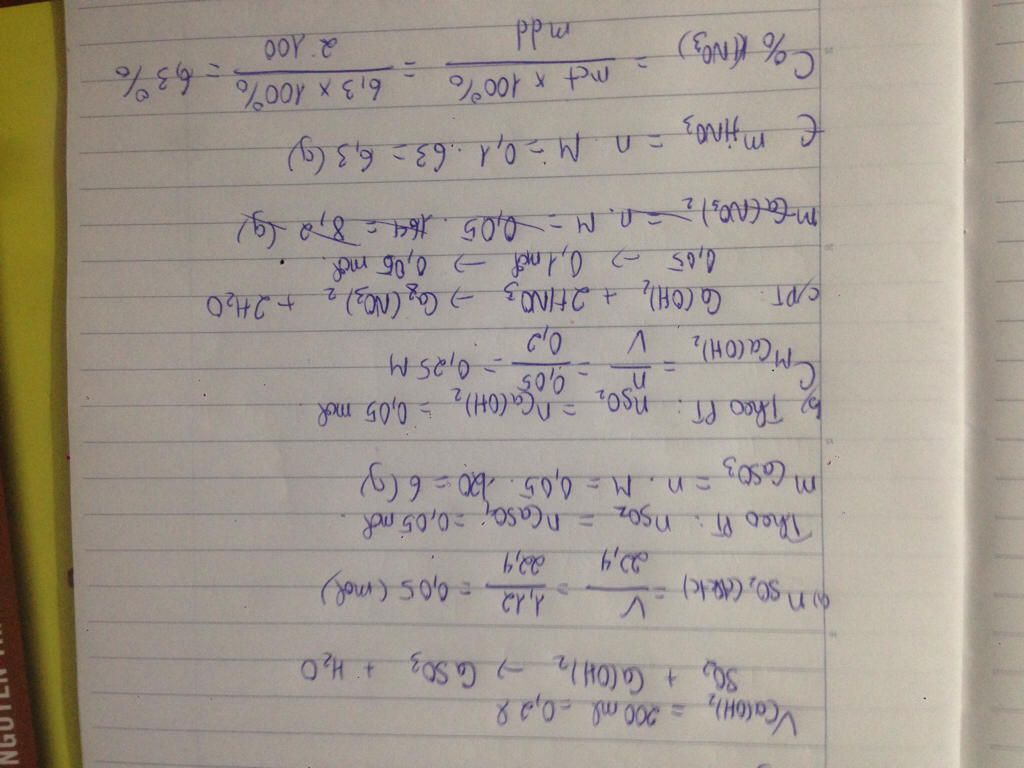 V Ca(OH)₂ = 200 ml = 0,2 l
SO₂ + Ca(OH)₂ → CaSO₃ + H₂O
a) n SO₂ (đktc) = V / 22,4 = 1,12 / 22,4 = 0,05 (mol)
Theo PT : nSO₂ = nCaSO₃ = 0,05 mol.
m CaSO₃ = n . M = 0,05 . 120 = 6 (g)
b) Theo PT : nSO₂ = nCa(OH)₂ = 0,05 mol.
CM Ca(OH)₂ = n / V = 0,05 / 0,2 = 0,25 M
c) PT : Ca(OH)₂ + 2HNO₃ → Ca(NO₃)₂ + 2H₂O
0,05 → 0,1 mol → 0,05 mol.
m Ca(NO₃)₂ = n. M = 0,05 . 164 = 8,2 (g)
m HNO₃ = n . M = 0,1 . 63 = 6,3 (g)
C% (NO₃) = mct x 100% / mdd = 6,3 x 100% / 2 100 = 6,3 %
NGUYEN